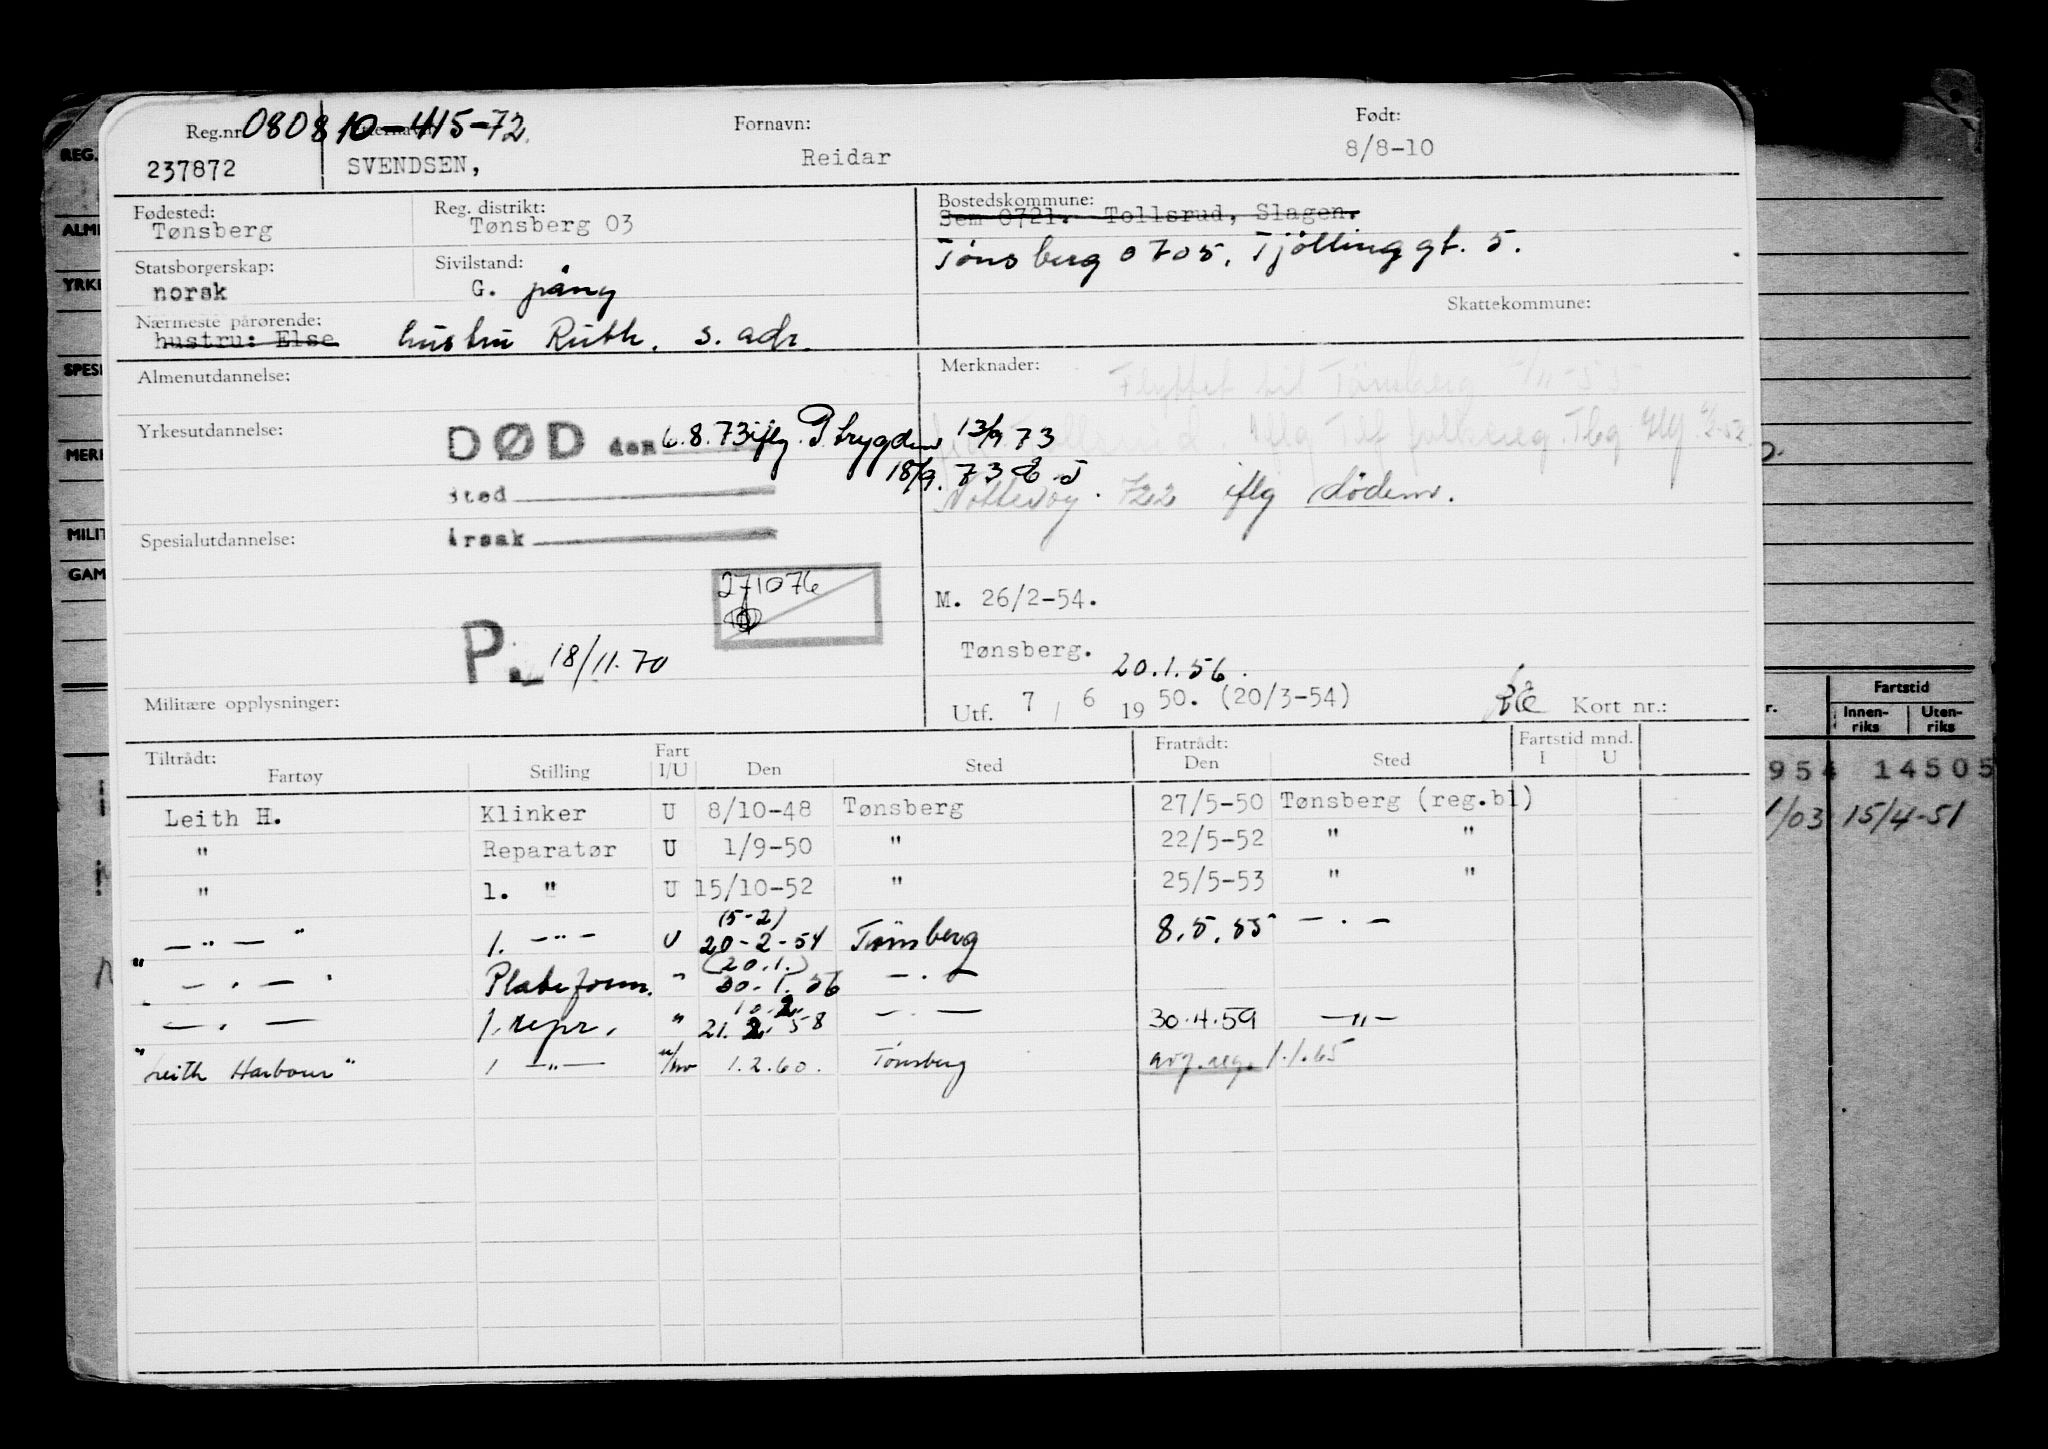 Reg.nr. 080810-415-72 Fornavn: Født:
237872 SVENDSEN, Reidar 8/8-10
Fødested: Reg. distrikt: Bostedskommune:
Tønsberg Tønsberg 03 Sem 0721. Tollsrud, Slagen.
Tønsberg 0705. Tjøllinggt. 5.
Statsborgerskap: Sivilstand:
norsk G. pány
Skattekommune:
Nærmeste pårørende:
hustru: Else hustru Ruth. s. adr.
Almenutdannelse: Merknader:
Flyttet til Tønsberg
Yrkesutdannelse:
DØD den 6.8.73 iflg. P. trygden 13/9 73
18/9. 73
sted
Nøtterøy. 722 iflg dødem.
Spesialutdannelse: årsak
271076
M. 26/2-54.
P. 18/11.70
Tønsberg. 20.1.56.
Militære opplysninger: Utf. 7 / 6 19 50. (20/3-54) Kort nr.:
Tiltrådt: Fart Fratrådt: Fartstid mnd.
Fartøy Stilling I/U Den Sted Den Sted I U
Leith H. Klinker U 8/10-48 Tønsberg 27/5-50 Tønsberg (reg.bl)
" Reparatør U 1/9-50 " 22/5-52 " "
" 1. " U 15/10-52 " 25/5-53 " "
(5-2)
" — " — " 1. — " — U 20-2-54 Tønsberg 8.5.55 — . —
(20.1.)
" — . — " Plateform. " 30.1.56 — . —
10.2.
— . — 1. repr. " 21.2.58 — . — 30.4.59 — " —
"Leith Harbour" 1 — " — 1.2.60. Tønsberg avg.reg. 1.1.65
REG.
ALM
YRKE
SPESI
MERK
MILIT
GAM
Fartstid
Innen-
riks
Uten-
riks
954 14505
1/03 15/4-51